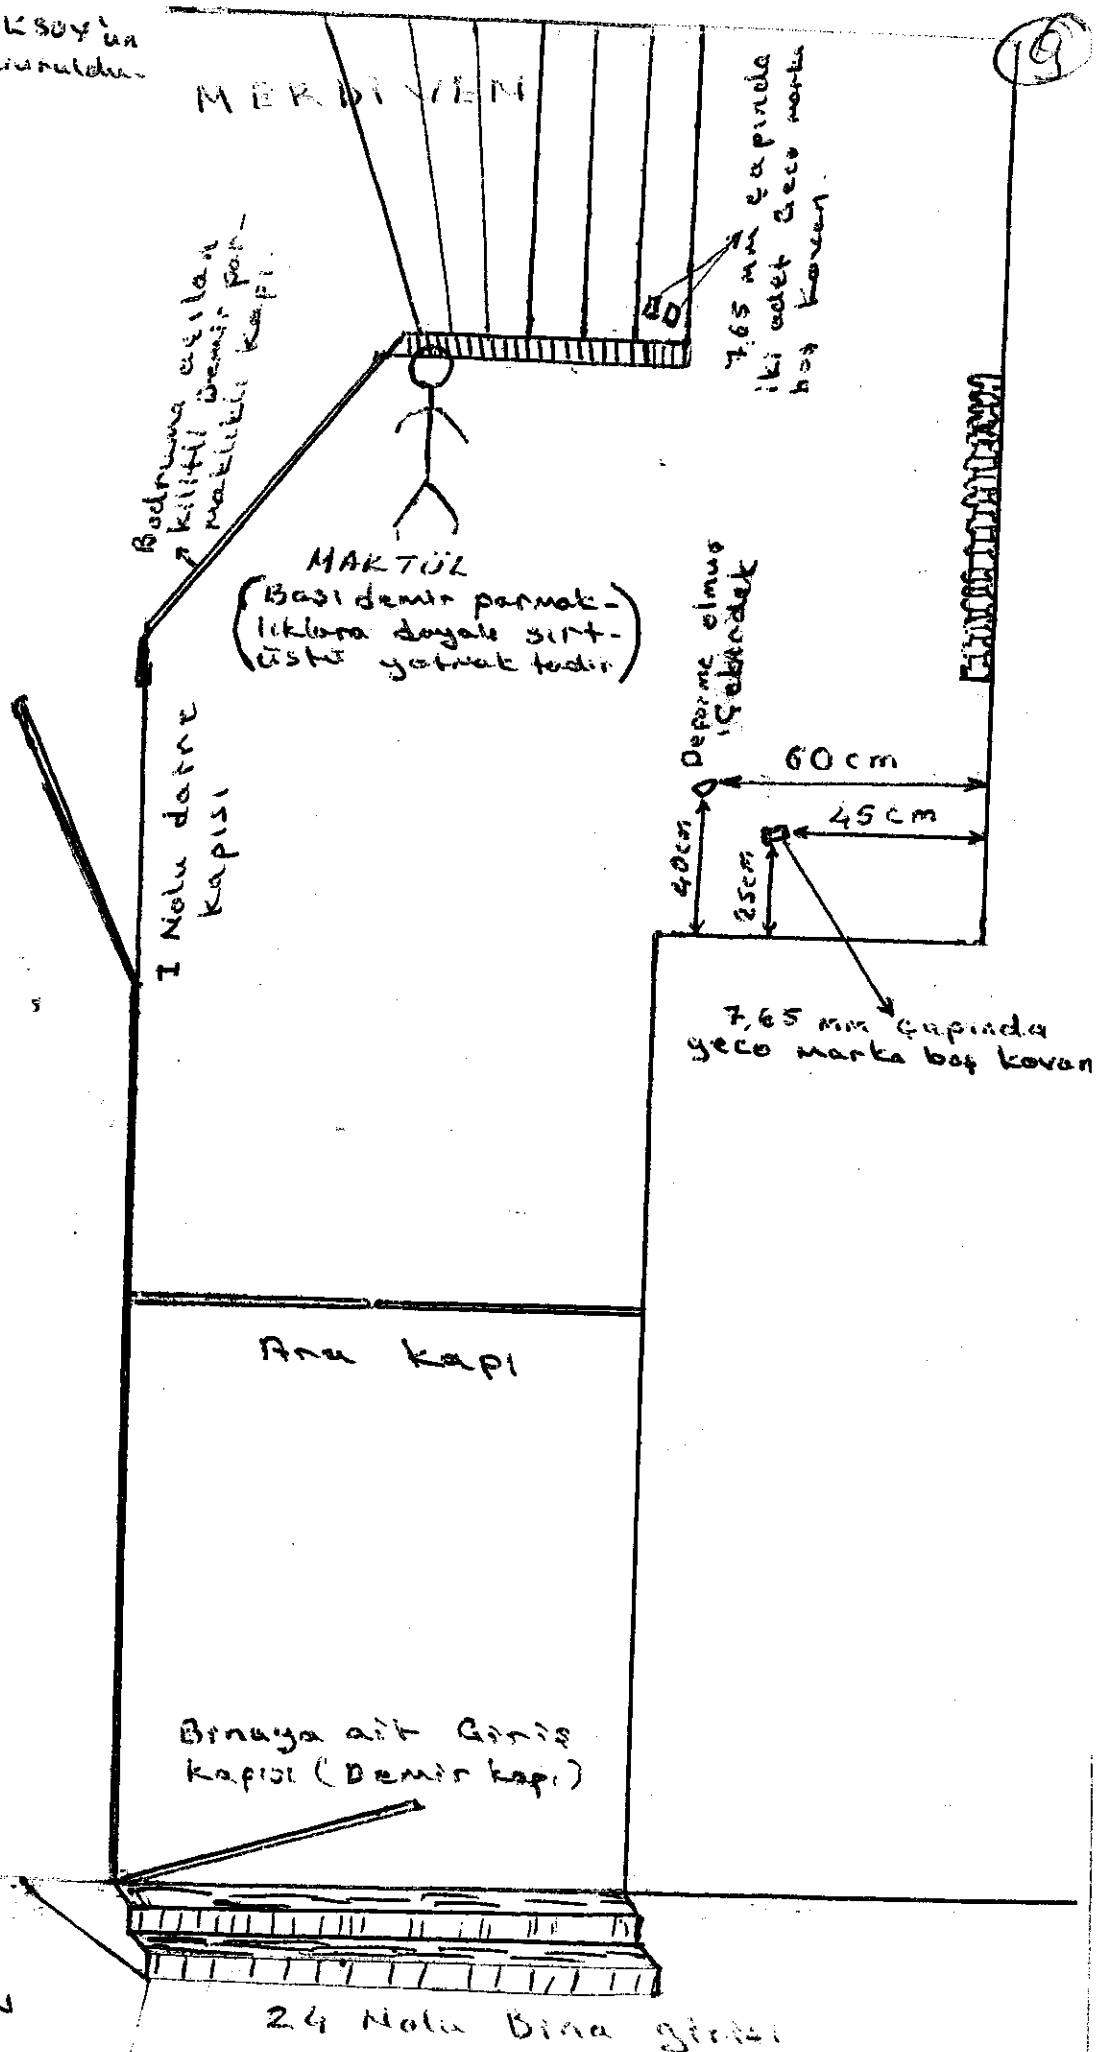 9
MERDİVEN
7.65 mm çapında
iki adet Geco marka
boş kovan.
Bodruma açılan
kilitli Demir par-
maklıklı kapı.
MAKTÜL
(Başı demir parmak-
lıklara dayalı sırt-
üstü yatmaktadır)
Deforme olmuş
Çekirdek
60 cm
45 cm
40cm
25cm
1 Nolu daire
kapısı
7,65 mm çapında
geco marka boş kovan
Ara kapı
Binaya ait Giriş
kapısı (Demir kapı)
24 Nolu Bina girişi